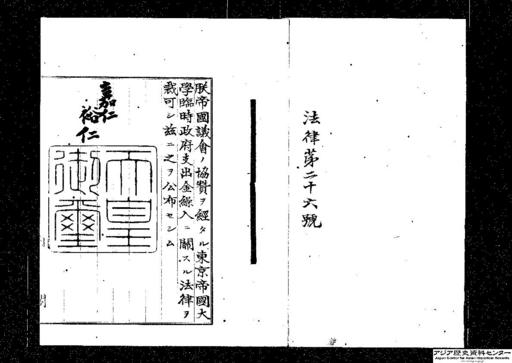 法律第二十六號
朕帝國議會ノ協賛ヲ經タル東京帝國大
學臨時政府支出金繰入ニ關スル法律ヲ
裁可シ茲ニ之ヲ公布セシム
嘉仁
裕仁
天皇
御璽
アジア歴史資料センター
Japan Center for Asian Historical Records